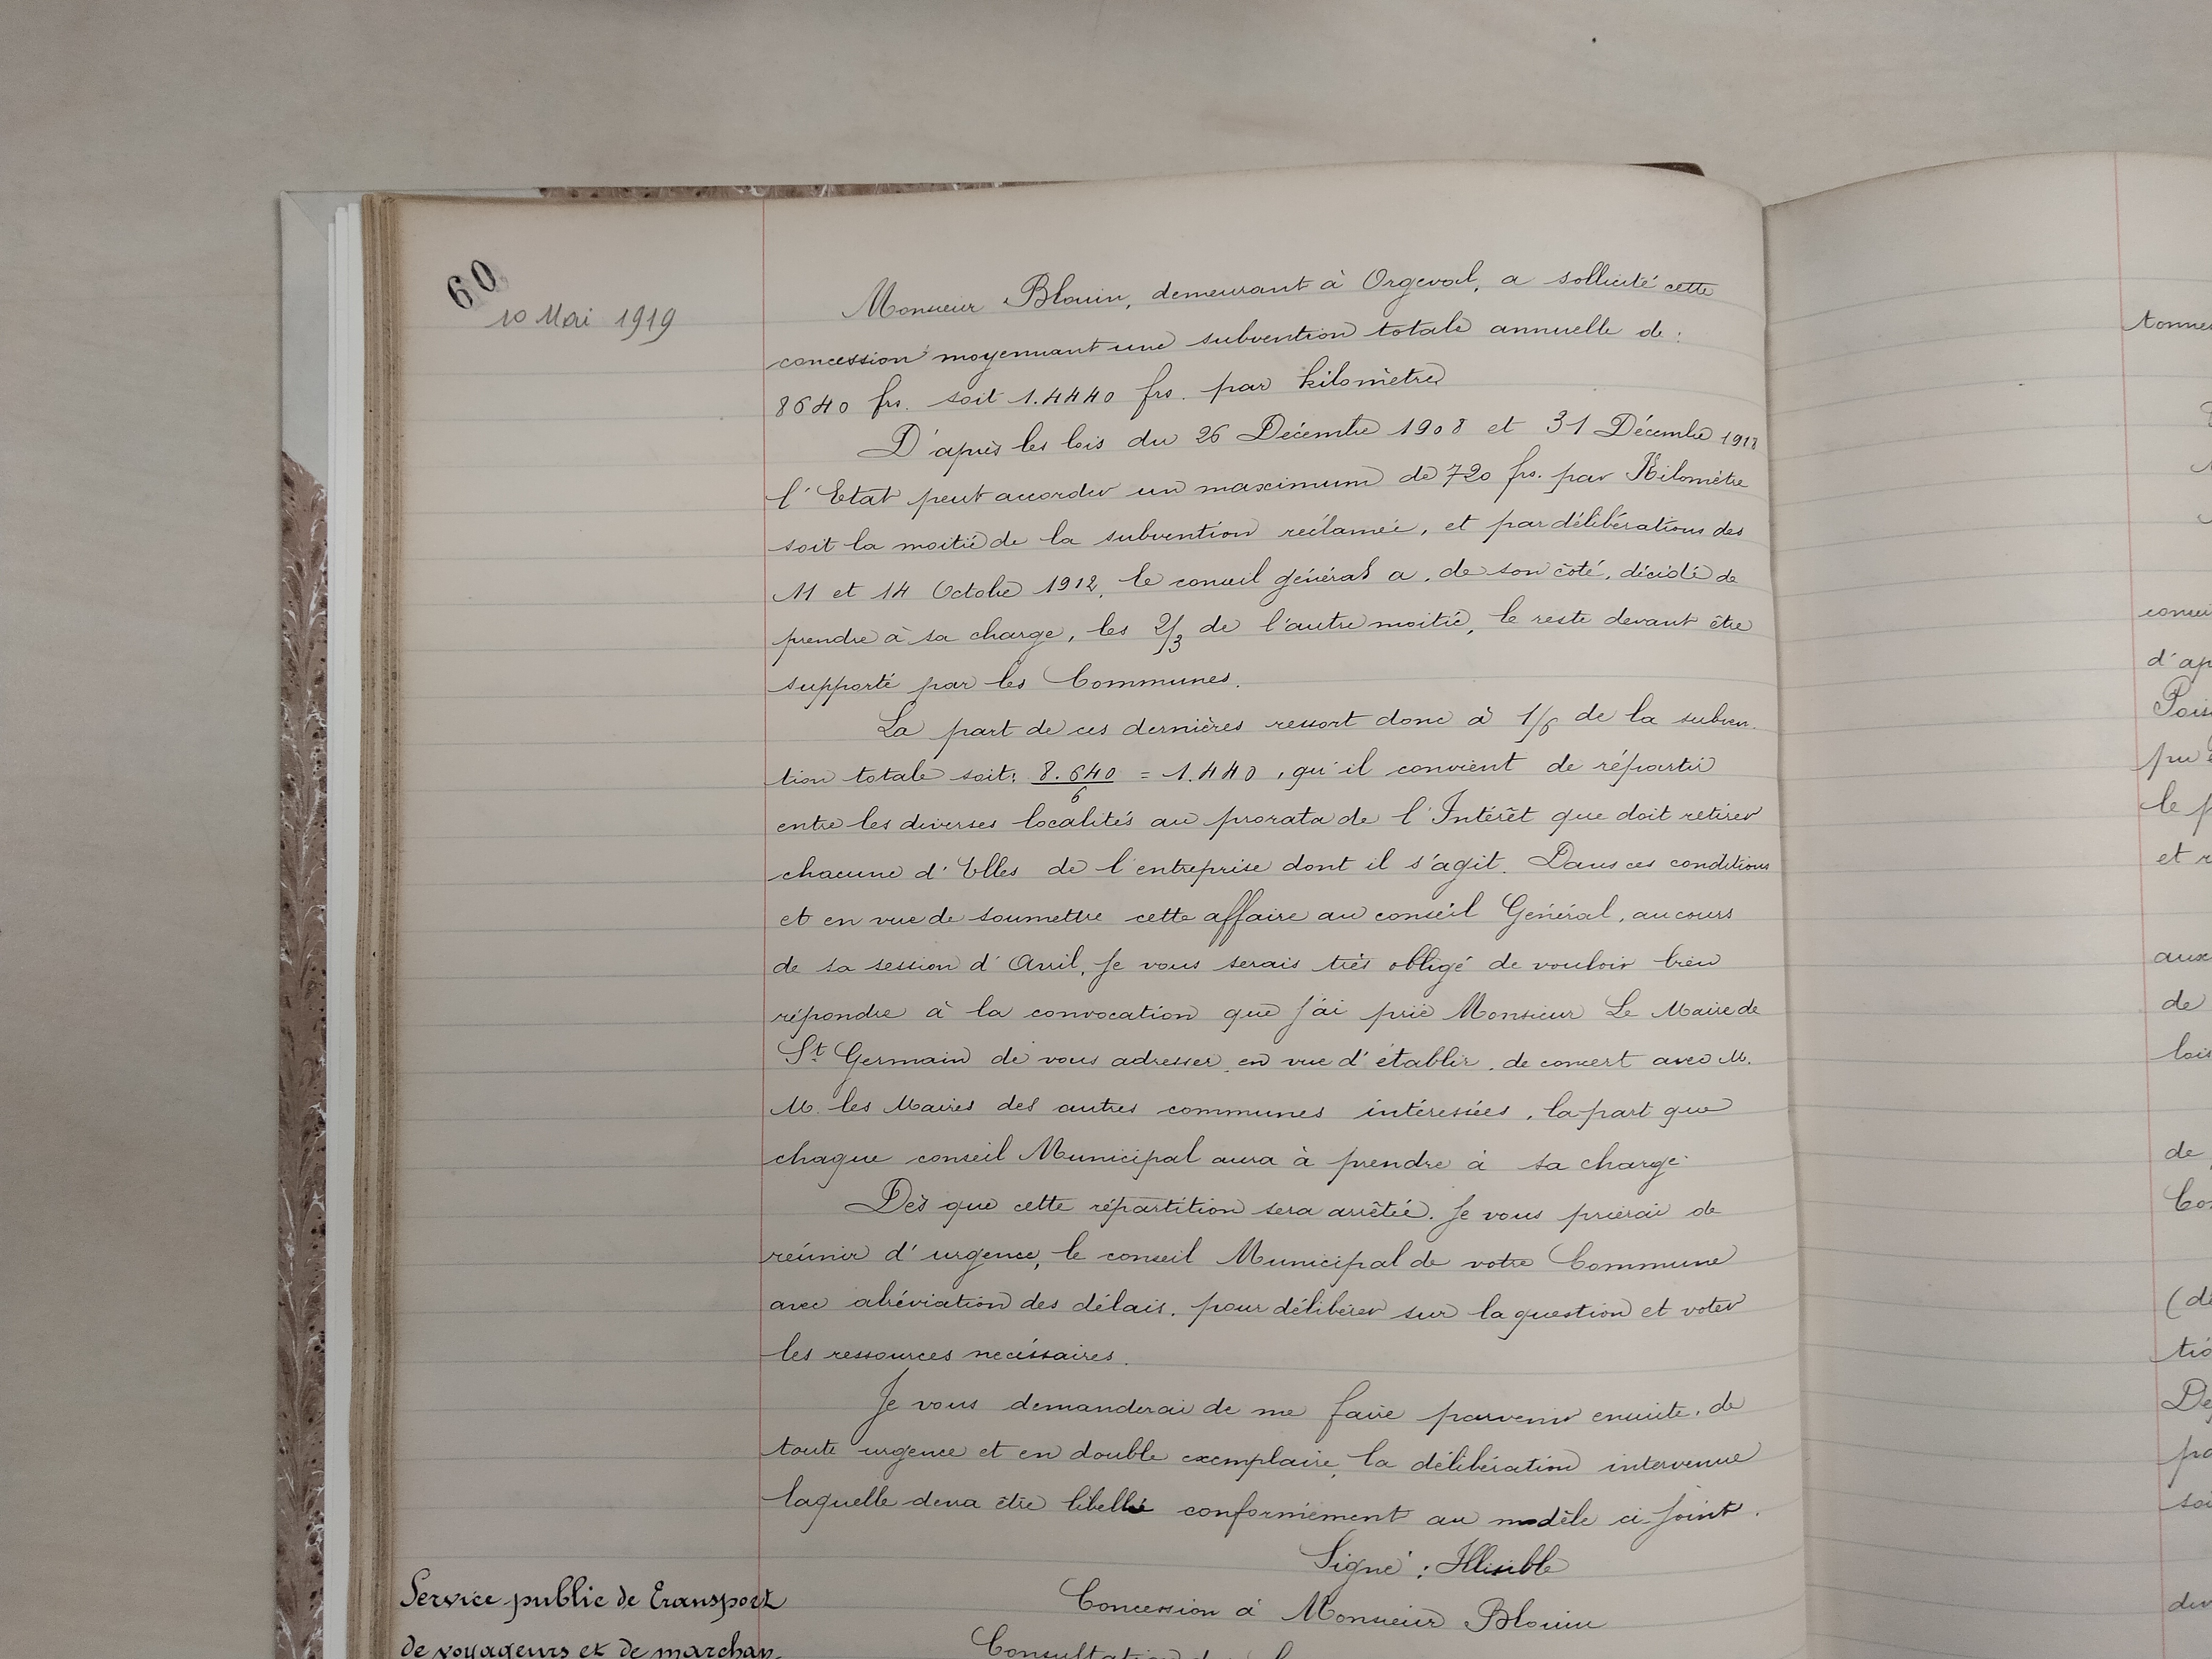 60
10 Mai 1919
Monsieur Blouin, demeurant à Orgeval, a sollicité cette
concession moyennant une subvention totale annuelle de :
8640 frs. soit 1.4440 frs. par kilomètre
D'après les lois du 26 Décembre 1908 et 31 Décembre 1918
l'Etat peut accorder un maximum de 720 frs. par Kilomètre
soit la moitié de la subvention réclamée, et par délibérations des
11 et 14 Octobre 1912, le conseil général a, de son côté, décidé de
prendre à sa charge, les 2/3 de l'autre moitié, le reste devant être
supporté par les Communes.
La part de ces dernières ressort donc à 1/6 de la subven-
tion totale soit: 8.640/6 = 1.440, qu'il convient de répartir
entre les diverses localités au prorata de l'Intérêt que doit retirer
chacune d'Elles de l'entreprise dont il s'agit. Dans ces conditions
et en vue de soumettre cette affaire au conseil Général, au cours
de sa session d'Avril, Je vous serais très obligé de vouloir bien
répondre à la convocation que J'ai prié Monsieur Le Maire de
St Germain de vous adresser, en vue d'établir, de concert avec M.
M. les Maires des autres communes intéressées, la part que
chaque conseil Municipal aura à prendre à sa charge.
Dès que cette répartition sera arrêtée. Je vous prierai de
réunir d'urgence, le conseil Municipal de votre Commune
avec abréviation des délais, pour délibérer sur la question et voter
les ressources nécéssaires.
Je vous demanderai de me faire parvenir ensuite, de
toute urgence et en double exemplaire, la délibération intervenue
laquelle devra être libellé conformément au modèle ci-Joint.
Signé : Illisible
Service public de Transport
de voyageurs et de marchan-
Concession à Monsieur Blouin
tonne
consei
d'ap
Pois
pu
le p
et r
aux
de
lois
de
Co
(de
tio
De
pa
soi